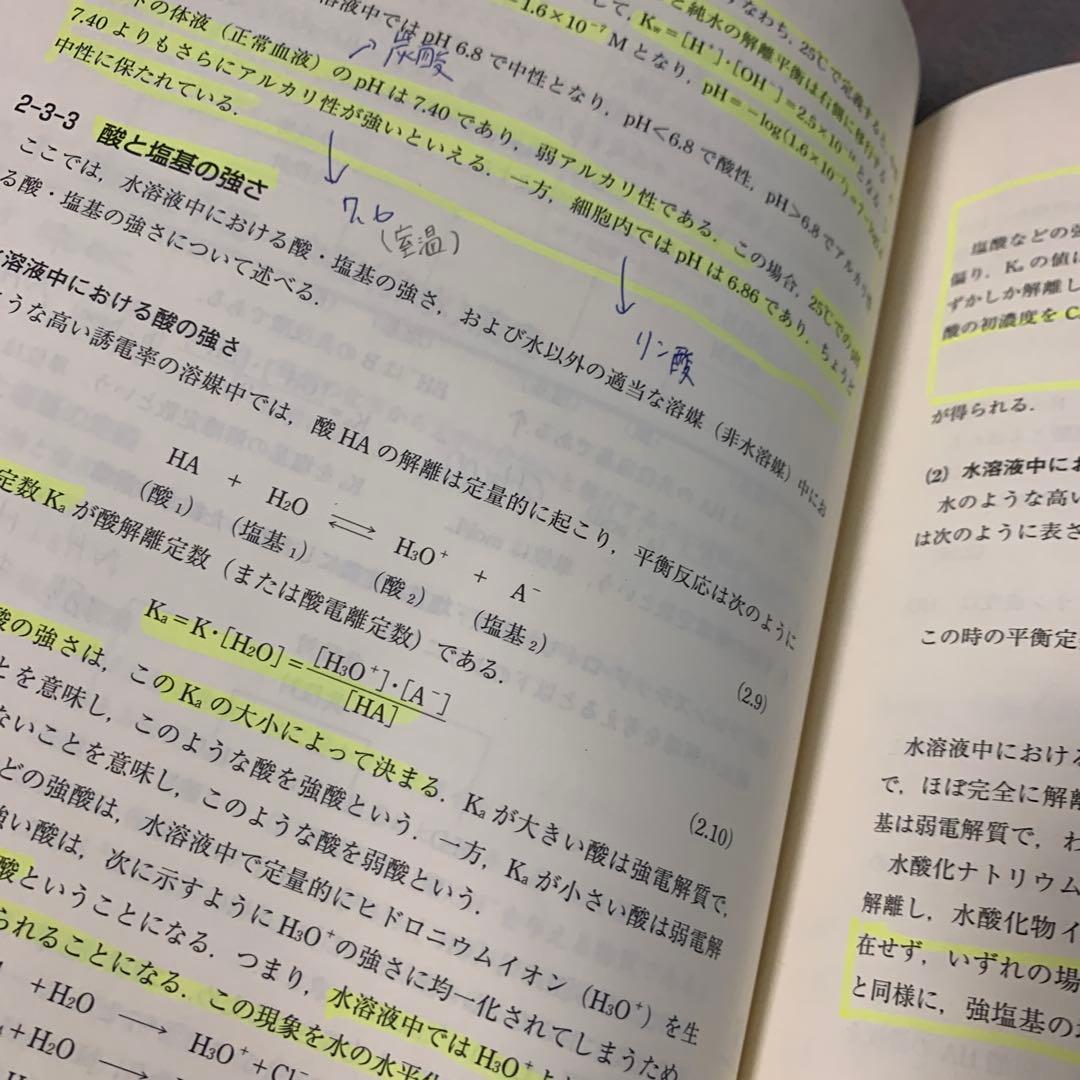 すなわち，25℃で定義する
と純水の解離平衡は右側に移行する
して，Kw＝[H⁺]・[OH⁻]＝2.5×10⁻¹⁴となる
＝1.6×10⁻⁷ Mとなり，pH＝−log(1.6×10⁻⁷)＝
溶液中ではpH 6.8で中性となり，pH＜6.8で酸性，pH＞6.8でアルカリ性
の体液（正常血液）のpHは7.40であり，弱アルカリ性である．この場合，25℃での
7.40よりもさらにアルカリ性が強いといえる．一方，細胞内ではpHは6.86であり，ちょうど
中性に保たれている．
炭酸
7.0
（室温）
リン酸
2-3-3 酸と塩基の強さ
ここでは，水溶液中における酸・塩基の強さ，および水以外の適当な溶媒（非水溶媒）中にお
る酸・塩基の強さについて述べる．
溶液中における酸の強さ
ような高い誘電率の溶媒中では，酸HAの解離は定量的に起こり，平衡反応は次のように
HA + H₂O ⇌ H₃O⁺ + A⁻
（酸₁） （塩基₁） （酸₂） （塩基₂） (2.9)
定数Kₐが酸解離定数（または酸電離定数）である．
Kₐ＝K・[H₂O]＝[H₃O⁺]・[A⁻]/[HA] (2.10)
酸の強さは，このKₐの大小によって決まる．Kₐが大きい酸は強電解質で，
とを意味し，このような酸を強酸という．一方，Kₐが小さい酸は弱電解
ないことを意味し，このような酸を弱酸という．
どの強酸は，水溶液中で定量的にヒドロニウムイオン（H₃O⁺）を生
強い酸は，次に示すようにH₃O⁺の強さに均一化されてしまうため
酸ということになる．つまり，水溶液中ではH₃O⁺よ
られることになる．この現象を水の水平化
+H₂O ⟶ H₃O⁺+Cl⁻
+H₂O ⟶ H₃O⁺
塩酸などの強
偏り，Kₐの値に
ずかしか解離し
酸の初濃度をC
が得られる．
(2) 水溶液中にお
水のような高い
は次のように表さ
この時の平衡定
水溶液中における
で，ほぼ完全に解離
基は弱電解質で，わ
水酸化ナトリウム
解離し，水酸化物イ
在せず，いずれの場
と同様に，強塩基の